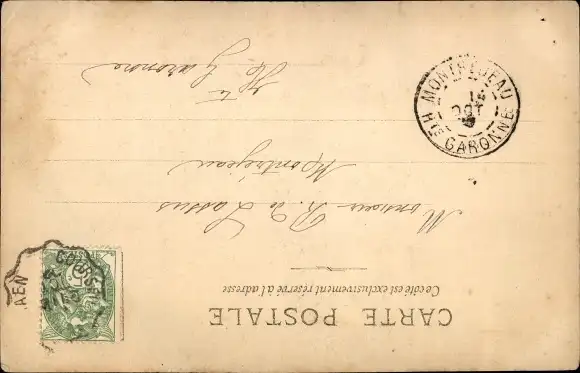 CARTE POSTALE
Ce côté est exclusivement réservé à l'adresse
Monsieur R. de Lassus
Montréjeau
Hte Garonne
MONTREJEAU
14
OCT
HTE GARONNE
5